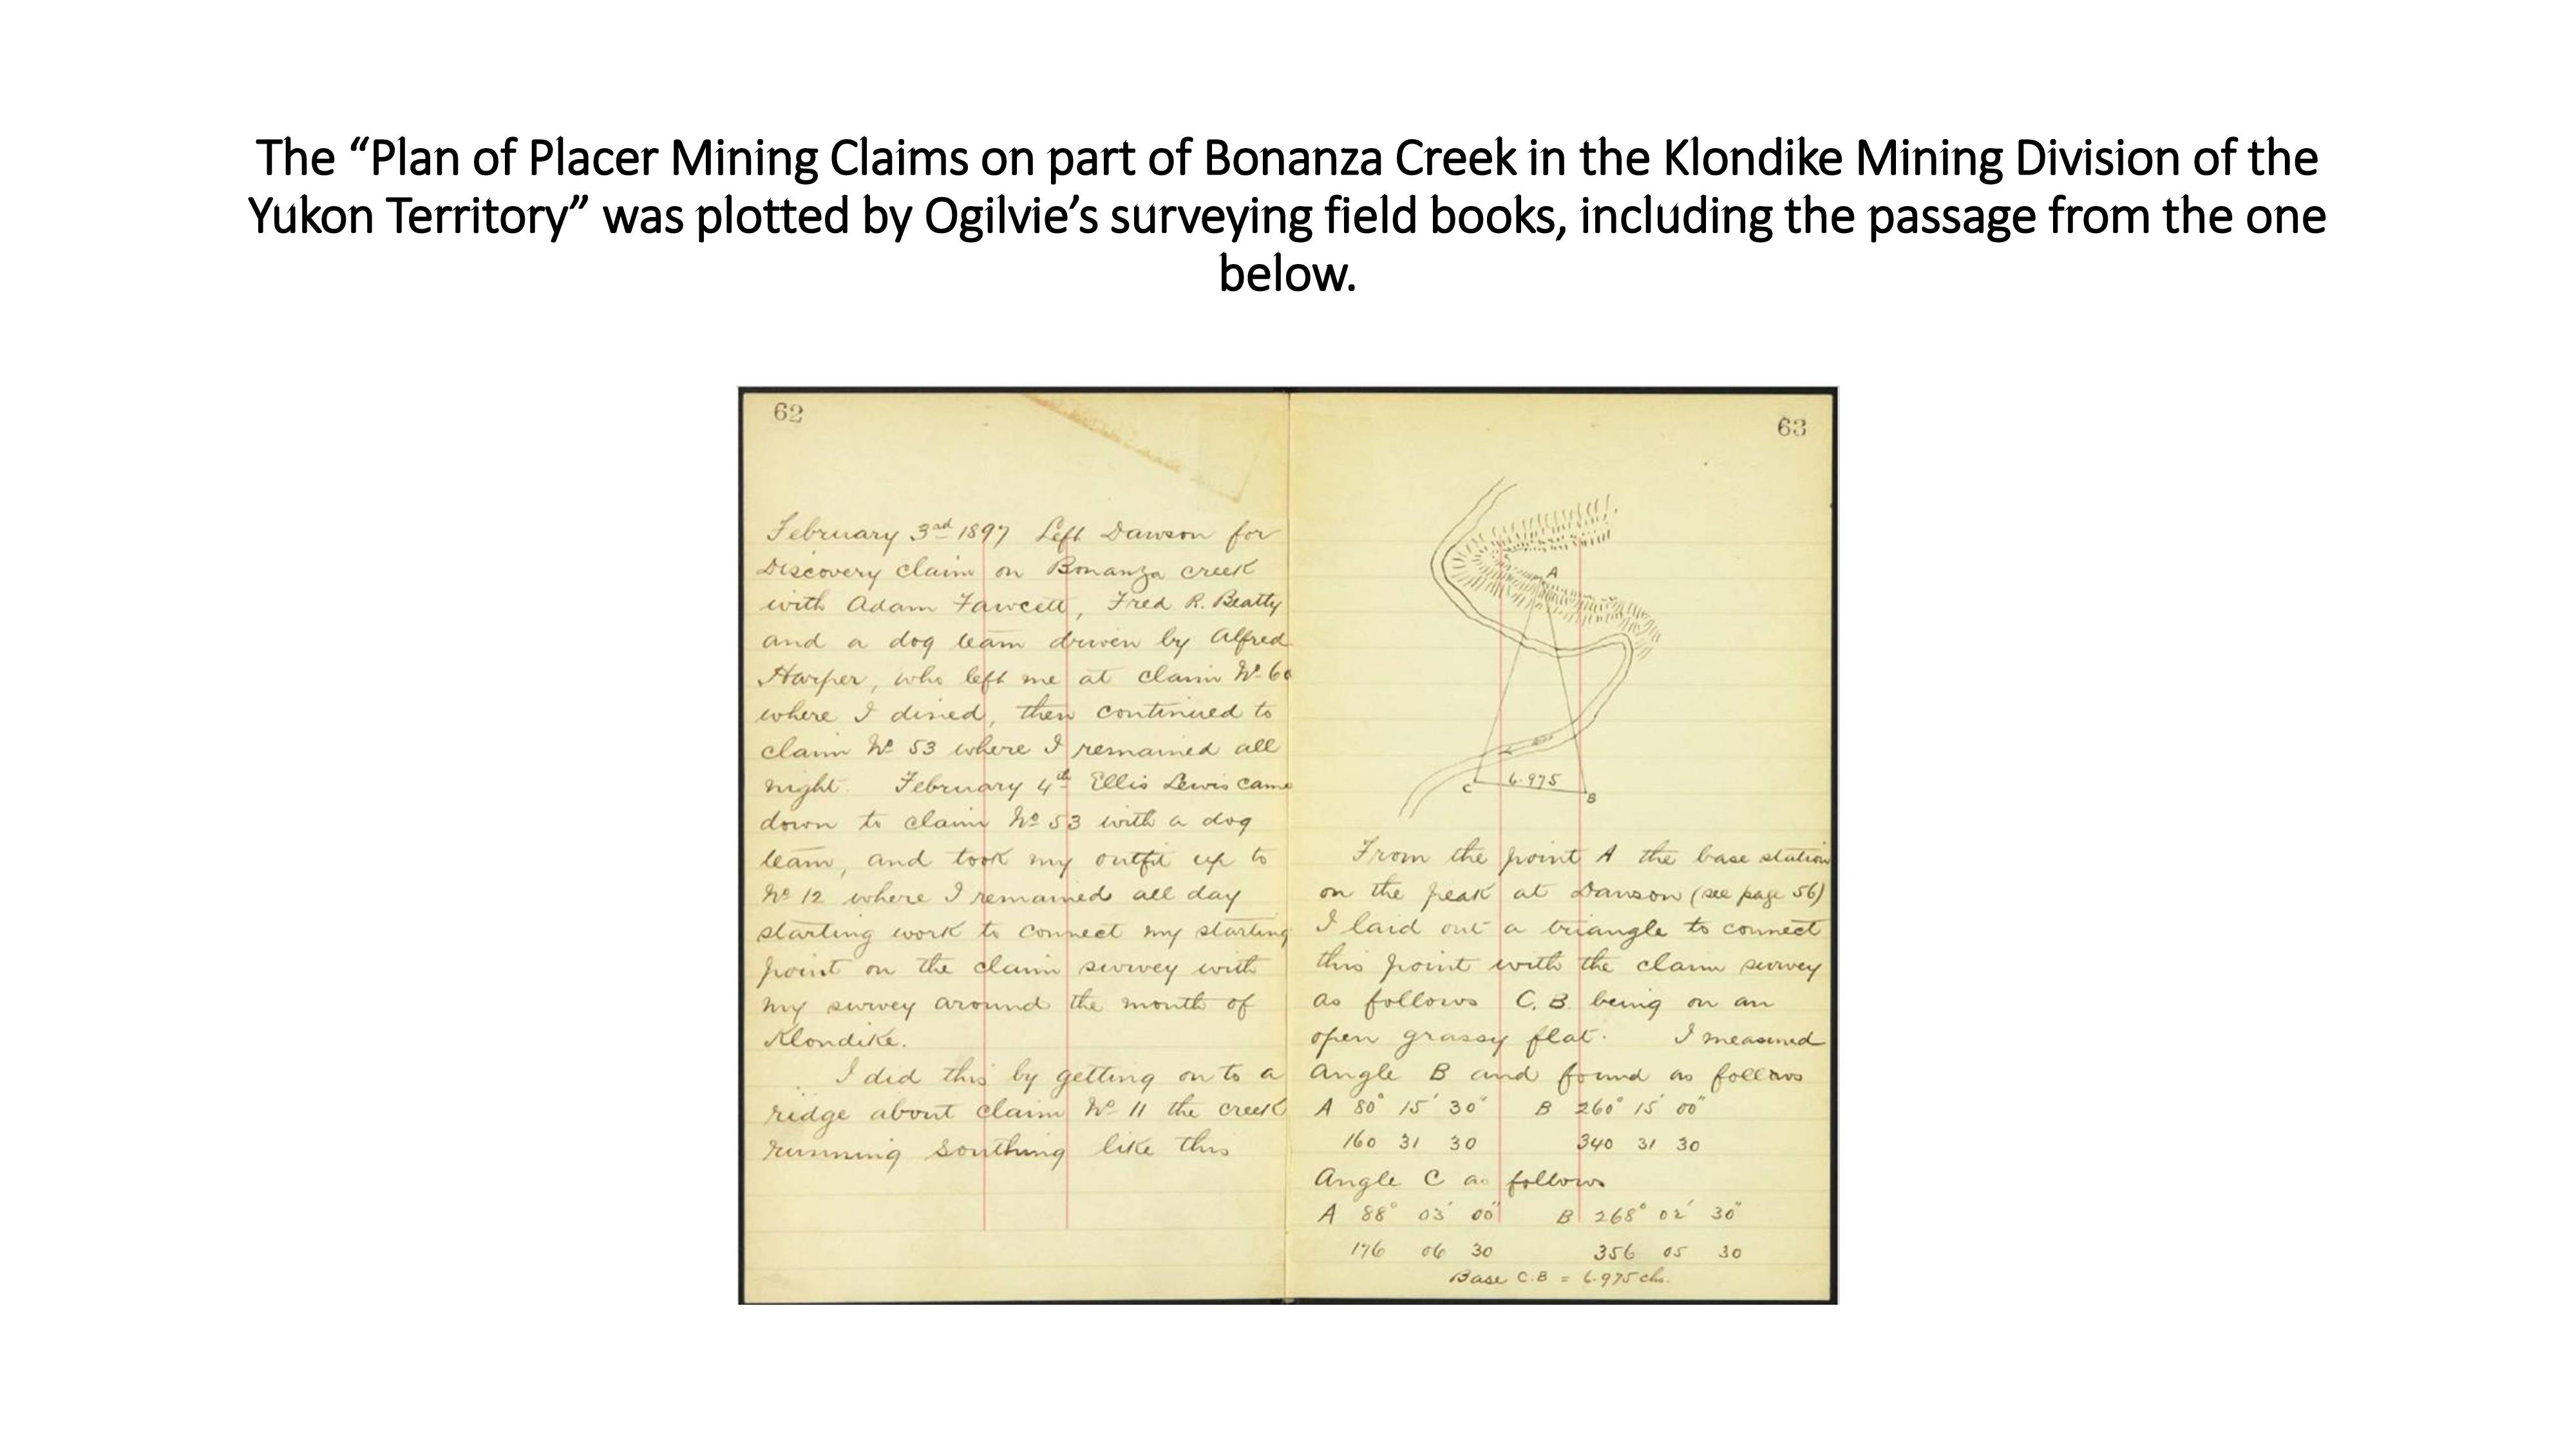 The “Plan of Placer Mining Claims on part of Bonanza Creek in the Klondike Mining Division of the
Yukon Territory” was plotted by Ogilvie’s surveying field books, including the passage from the one
below.
62
February 3rd 1897 Left Dawson for
Discovery claim on Bonanza creek
with Adam Fawcett, Fred R. Beatty
and a dog team driven by Alfred
Harper, who left me at claim No 60
where I dined, then continued to
claim No 53 where I remained all
night. February 4th Ellis Lewis came
down to claim No 53 with a dog
team, and took my outfit up to
No 12 where I remained all day
starting work to connect my starting
point on the claim survey with
my survey around the mouth of
Klondike.
I did this by getting on to a
ridge about claim No 11 the creek
running southing like this
63
A
C
6.975
B
From the point A the base station
on the peak at Dawson (see page 56)
I laid out a triangle to connect
this point with the claim survey
as follows C.B. being on an
open grassy flat. I measured
Angle B and found as follows
A 80° 15' 30" B 260° 15' 00"
160 31 30 340 31 30
Angle C as follows
A 88° 03' 00" B 268° 02' 30"
176 06 30 356 05 30
Base C.B = 6.975 chs.